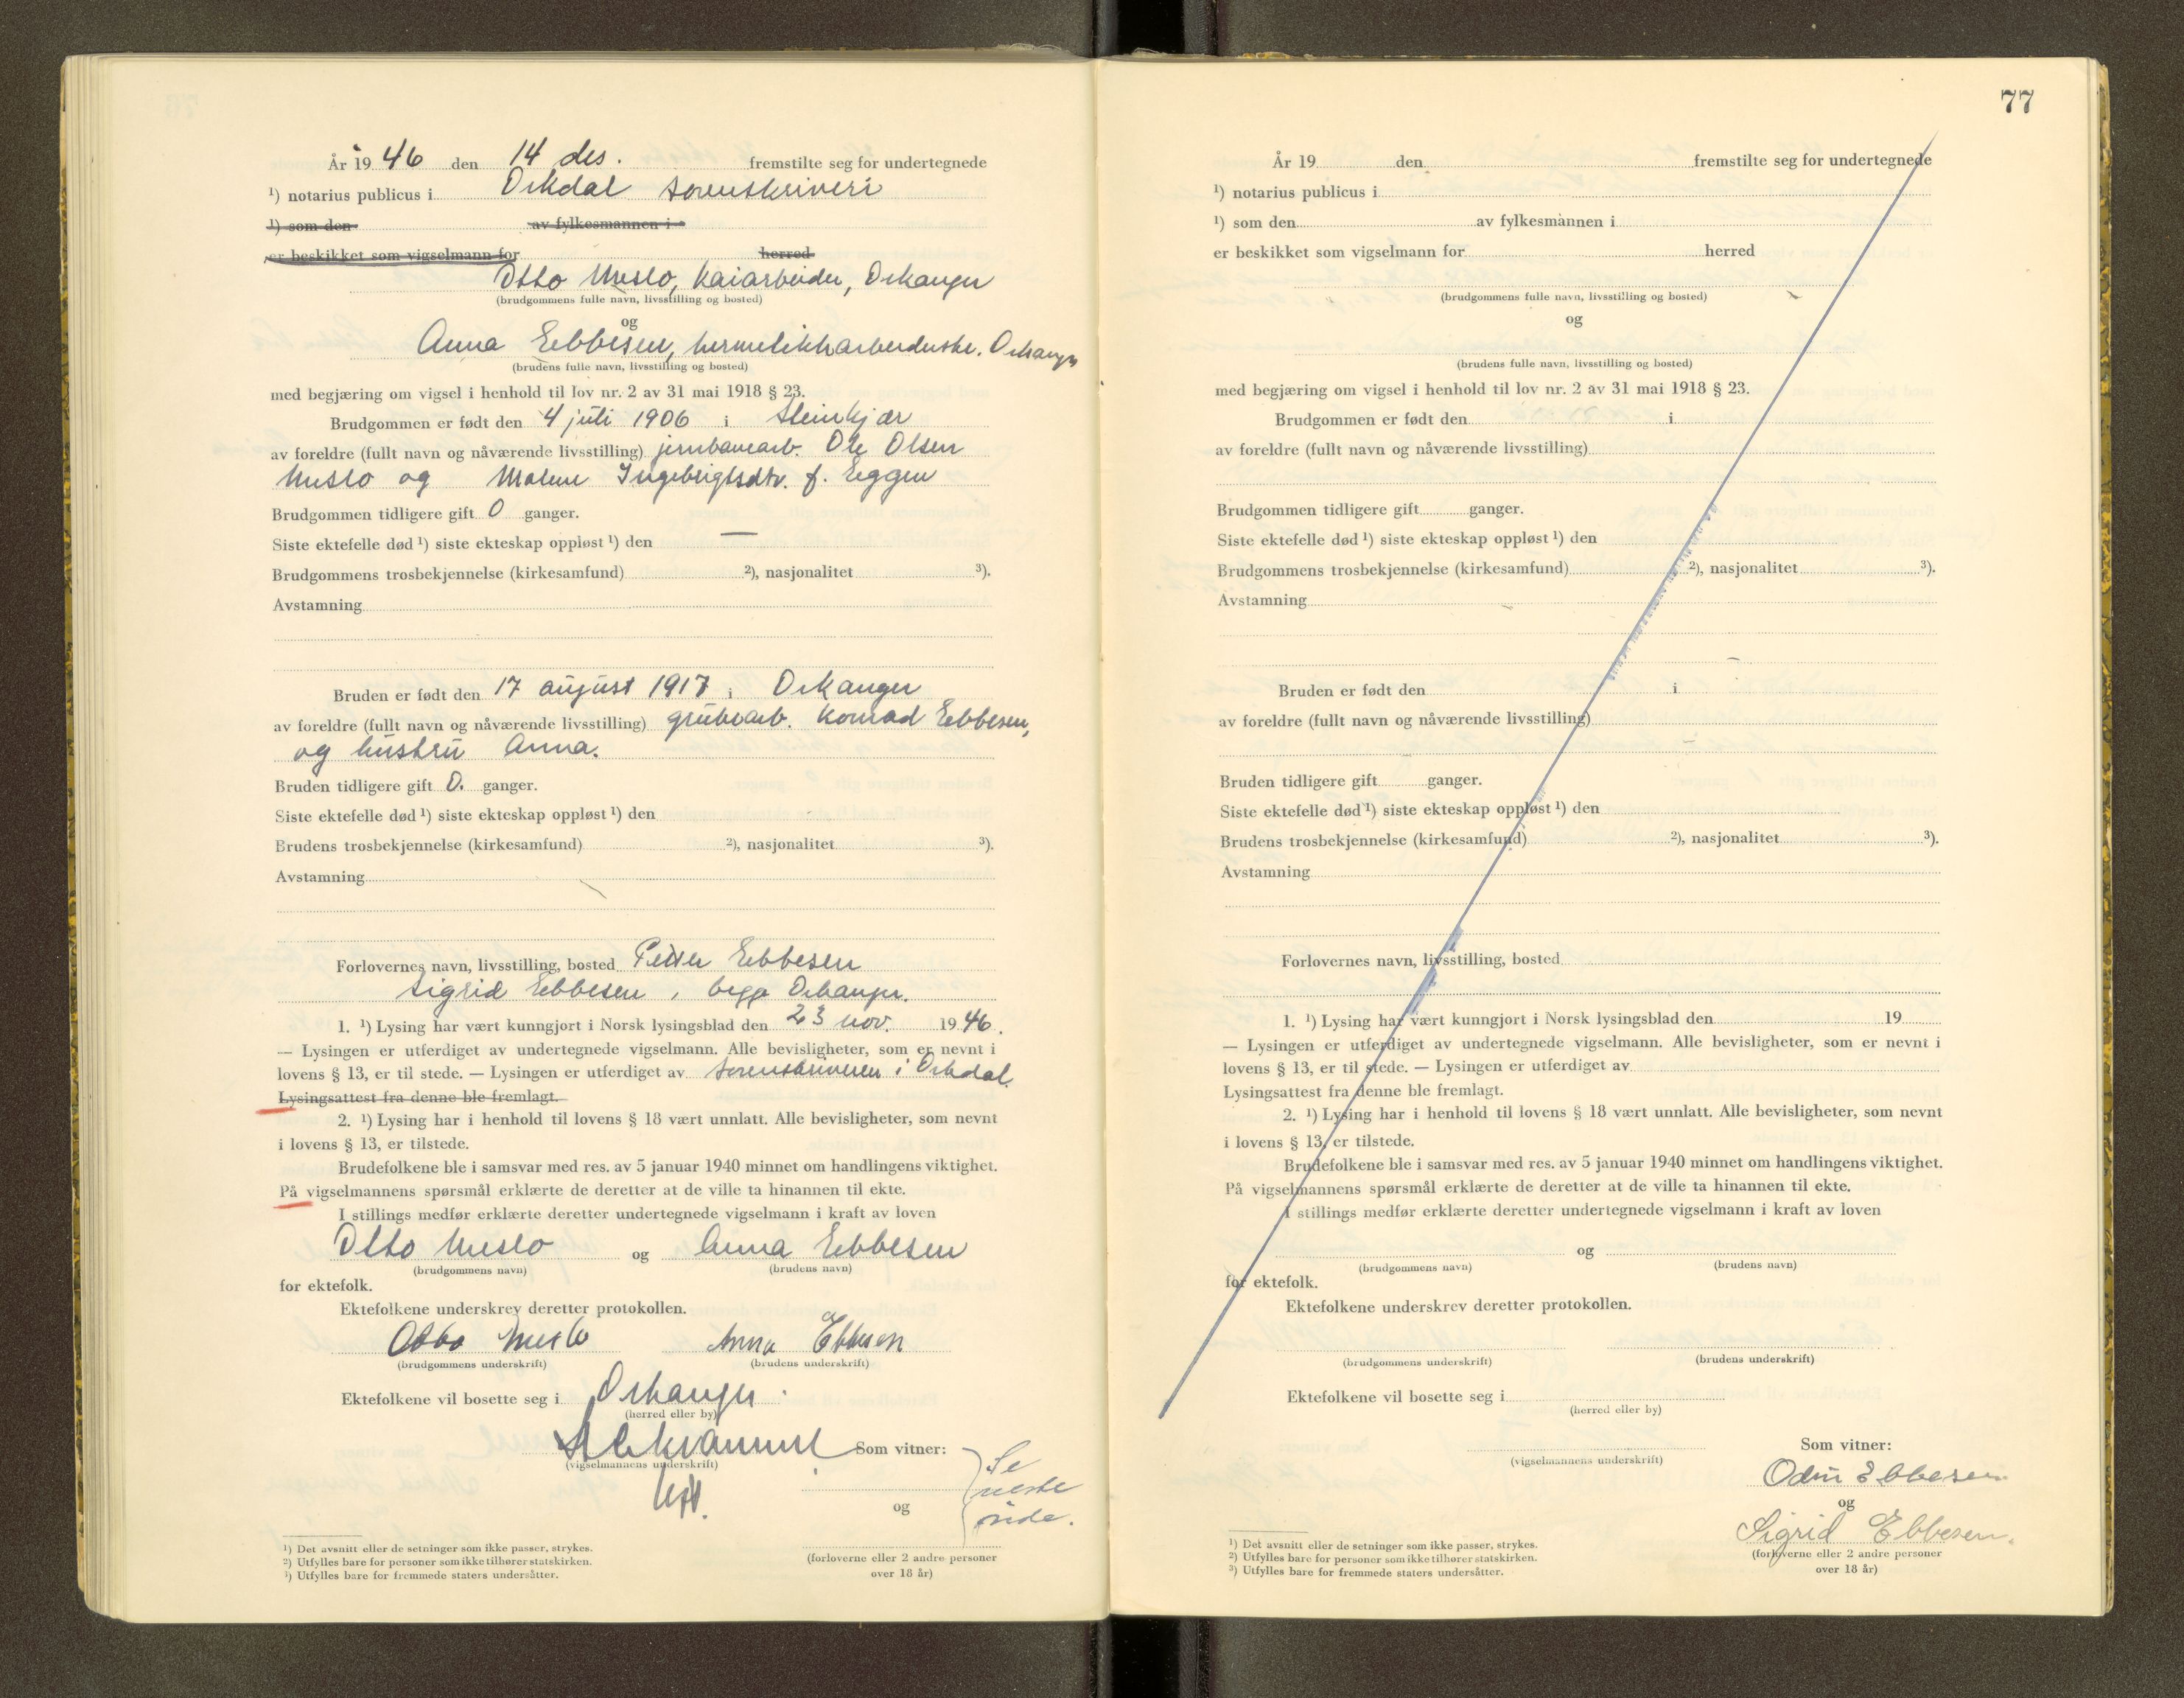 År 19 46 den 14 des. fremstilte seg for undertegnede
¹) notarius publicus i Orkdal sorenskriveri
¹) som den av fylkesmannen i
er beskikket som vigselmann for herred
Otto Muslo, kaiarbeider, Orkanger
(brudgommens fulle navn, livsstilling og bosted)
og
Anna Ebbesen, hermetikkarbeiderske. Orkanger
(brudens fulle navn, livsstilling og bosted)
med begjæring om vigsel i henhold til lov nr. 2 av 31 mai 1918 § 23.
Brudgommen er født den 4 juli 1906 i Steinkjær
av foreldre (fullt navn og nåværende livsstilling) jernbanearb. Ole Olsen
Muslo og Malene Ingebrigtsdtr. f. Eggen
Brudgommen tidligere gift 0 ganger.
Siste ektefelle død ¹) siste ekteskap oppløst ¹) den —
Brudgommens trosbekjennelse (kirkesamfund) ²), nasjonalitet ³).
Avstamning
Bruden er født den 17 august 1917 i Orkanger
av foreldre (fullt navn og nåværende livsstilling) grubearb. Konrad Ebbesen,
og hustru Anna.
Bruden tidligere gift 0. ganger.
Siste ektefelle død ¹) siste ekteskap oppløst ¹) den
Brudens trosbekjennelse (kirkesamfund) ²), nasjonalitet ³).
Avstamning
Forlovernes navn, livsstilling, bosted Petter Ebbesen
Sigrid Ebbesen, begge Orkanger.
1. ¹) Lysing har vært kunngjort i Norsk lysingsblad den 23 nov. 19 46.
— Lysingen er utferdiget av undertegnede vigselmann. Alle bevisligheter, som er nevnt i
lovens § 13, er til stede. — Lysingen er utferdiget av sorenskriveren i Orkdal
Lysingsattest fra denne ble fremlagt.
2. ¹) Lysing har i henhold til lovens § 18 vært unnlatt. Alle bevisligheter, som nevnt
i lovens § 13, er tilstede.
Brudefolkene ble i samsvar med res. av 5 januar 1940 minnet om handlingens viktighet.
På vigselmannens spørsmål erklærte de deretter at de ville ta hinannen til ekte.
I stillings medfør erklærte deretter undertegnede vigselmann i kraft av loven
Otto Muslo og Anna Ebbesen
(brudgommens navn) (brudens navn)
for ektefolk.
Ektefolkene underskrev deretter protokollen.
Otto Muslo Anna Ebbesen
(brudgommens underskrift) (brudens underskrift)
Ektefolkene vil bosette seg i Orkanger.
(herred eller by)
Som vitner:
(vigselmannens underskrift)
Se
neste
side.
og
(forloverne eller 2 andre personer
over 18 år)
¹) Det avsnitt eller de setninger som ikke passer, strykes.
²) Utfylles bare for personer som ikke tilhører statskirken.
³) Utfylles bare for fremmede staters undersåtter.
77
År 19 den fremstilte seg for undertegnede
¹) notarius publicus i
¹) som den av fylkesmannen i
er beskikket som vigselmann for herred
(brudgommens fulle navn, livsstilling og bosted)
og
(brudens fulle navn, livsstilling og bosted)
med begjæring om vigsel i henhold til lov nr. 2 av 31 mai 1918 § 23.
Brudgommen er født den i
av foreldre (fullt navn og nåværende livsstilling)
Brudgommen tidligere gift ganger.
Siste ektefelle død ¹) siste ekteskap oppløst ¹) den
Brudgommens trosbekjennelse (kirkesamfund) ²), nasjonalitet ³).
Avstamning
Bruden er født den i
av foreldre (fullt navn og nåværende livsstilling)
Bruden tidligere gift ganger.
Siste ektefelle død ¹) siste ekteskap oppløst ¹) den
Brudens trosbekjennelse (kirkesamfund) ²), nasjonalitet ³).
Avstamning
Forlovernes navn, livsstilling, bosted
1. ¹) Lysing har vært kunngjort i Norsk lysingsblad den 19
— Lysingen er utferdiget av undertegnede vigselmann. Alle bevisligheter, som er nevnt i
lovens § 13, er til stede. — Lysingen er utferdiget av
Lysingsattest fra denne ble fremlagt.
2. ¹) Lysing har i henhold til lovens § 18 vært unnlatt. Alle bevisligheter, som nevnt
i lovens § 13, er tilstede.
Brudefolkene ble i samsvar med res. av 5 januar 1940 minnet om handlingens viktighet.
På vigselmannens spørsmål erklærte de deretter at de ville ta hinannen til ekte.
I stillings medfør erklærte deretter undertegnede vigselmann i kraft av loven
og
(brudgommens navn) (brudens navn)
for ektefolk.
Ektefolkene underskrev deretter protokollen.
(brudgommens underskrift) (brudens underskrift)
Ektefolkene vil bosette seg i
(herred eller by)
Som vitner:
(vigselmannens underskrift)
Odin Ebbesen
og
Sigrid Ebbesen.
(forloverne eller 2 andre personer
over 18 år)
¹) Det avsnitt eller de setninger som ikke passer, strykes.
²) Utfylles bare for personer som ikke tilhører statskirken.
³) Utfylles bare for fremmede staters undersåtter.